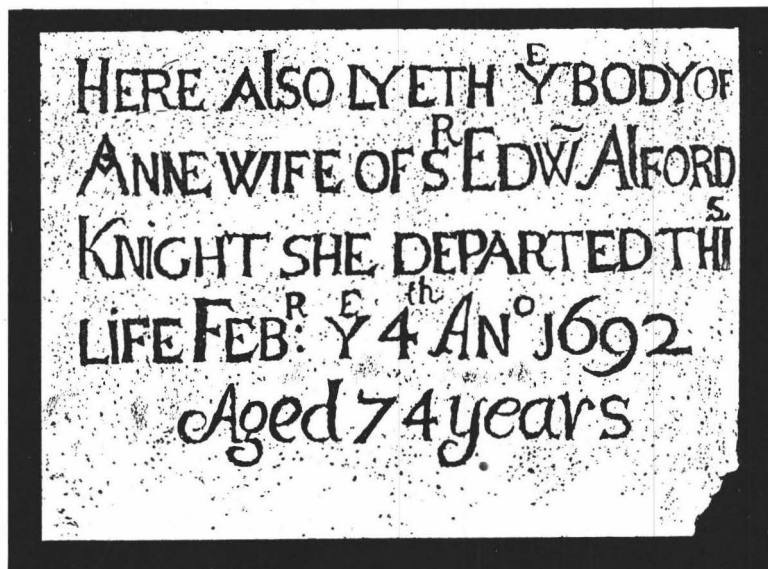 HERE AlSO LYETH Yᴱ BODY OF
ANNE WIFE OF Sᴿ EDW̃ AlFORD
KNIGHT SHE DEPARTED THIˢ
LIFE FEBᴿ: Yᴱ 4ᵗʰ ANᵒ J692
Aged 74 years